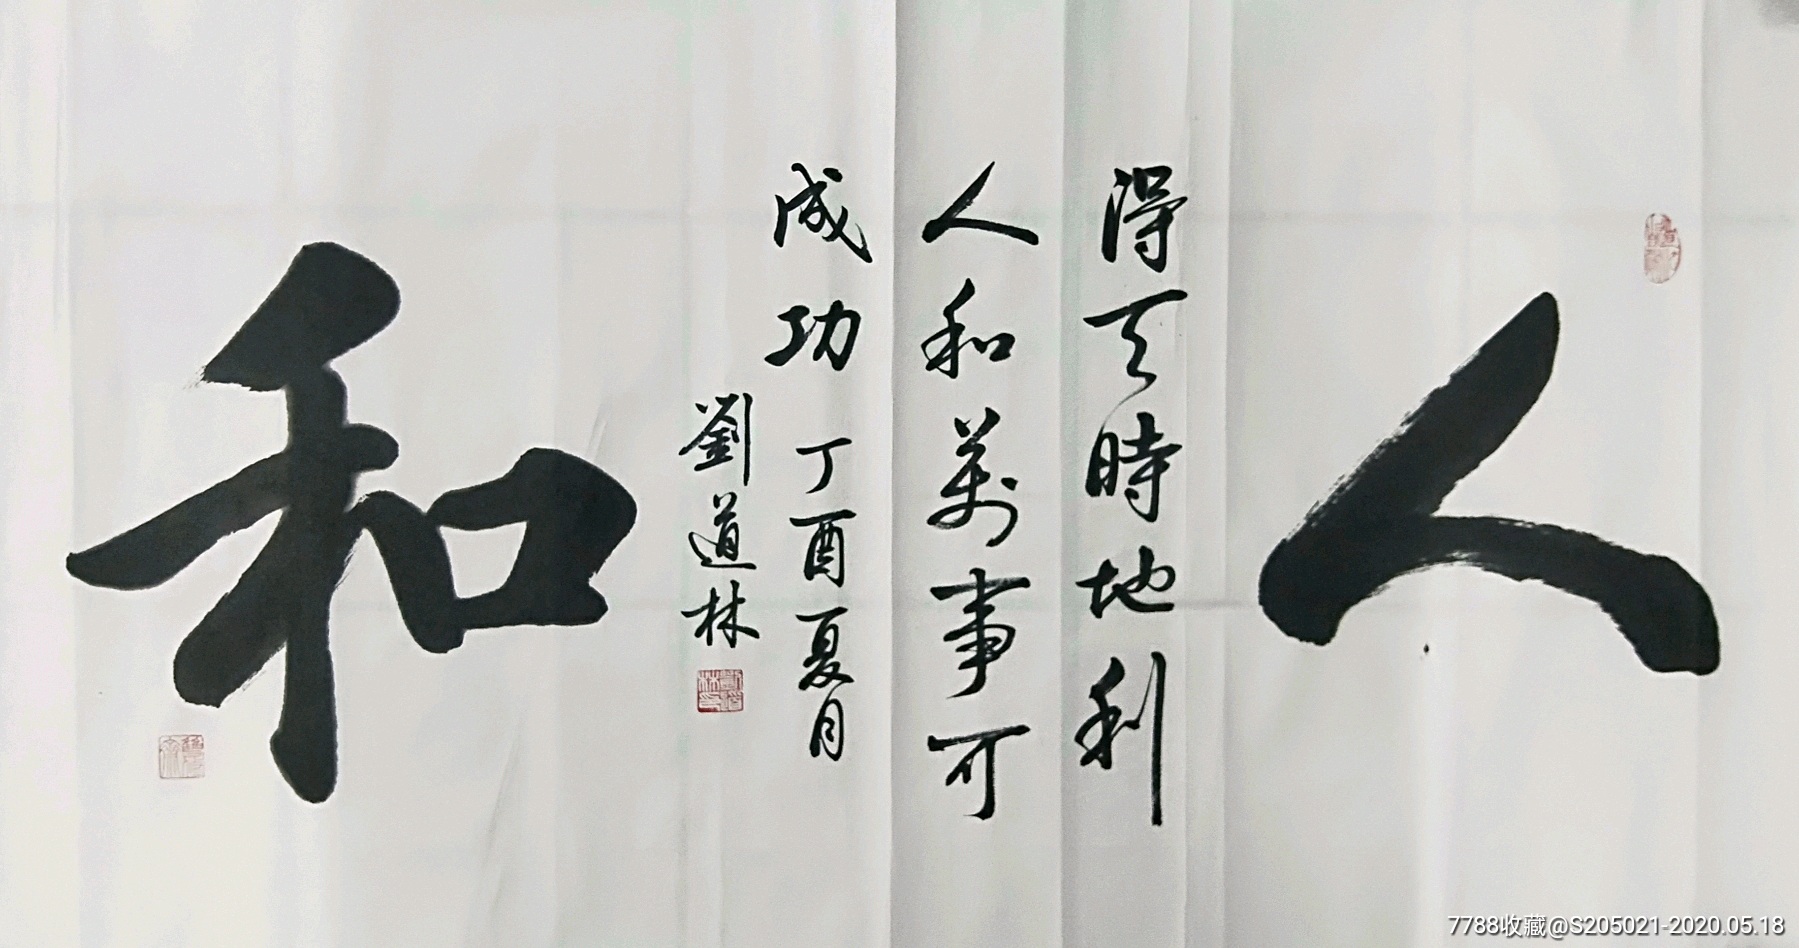 人
得天時地利
人和萬事可
成功 丁酉夏月
劉道林
和
7788收藏@S205021-2020.05.18